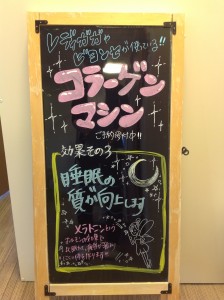 レディガガや
ビヨンセが使っている!!
コラーゲン
マシン
ご予約受付中!!
効果その3
睡眠の
質が向上します
メラトニン